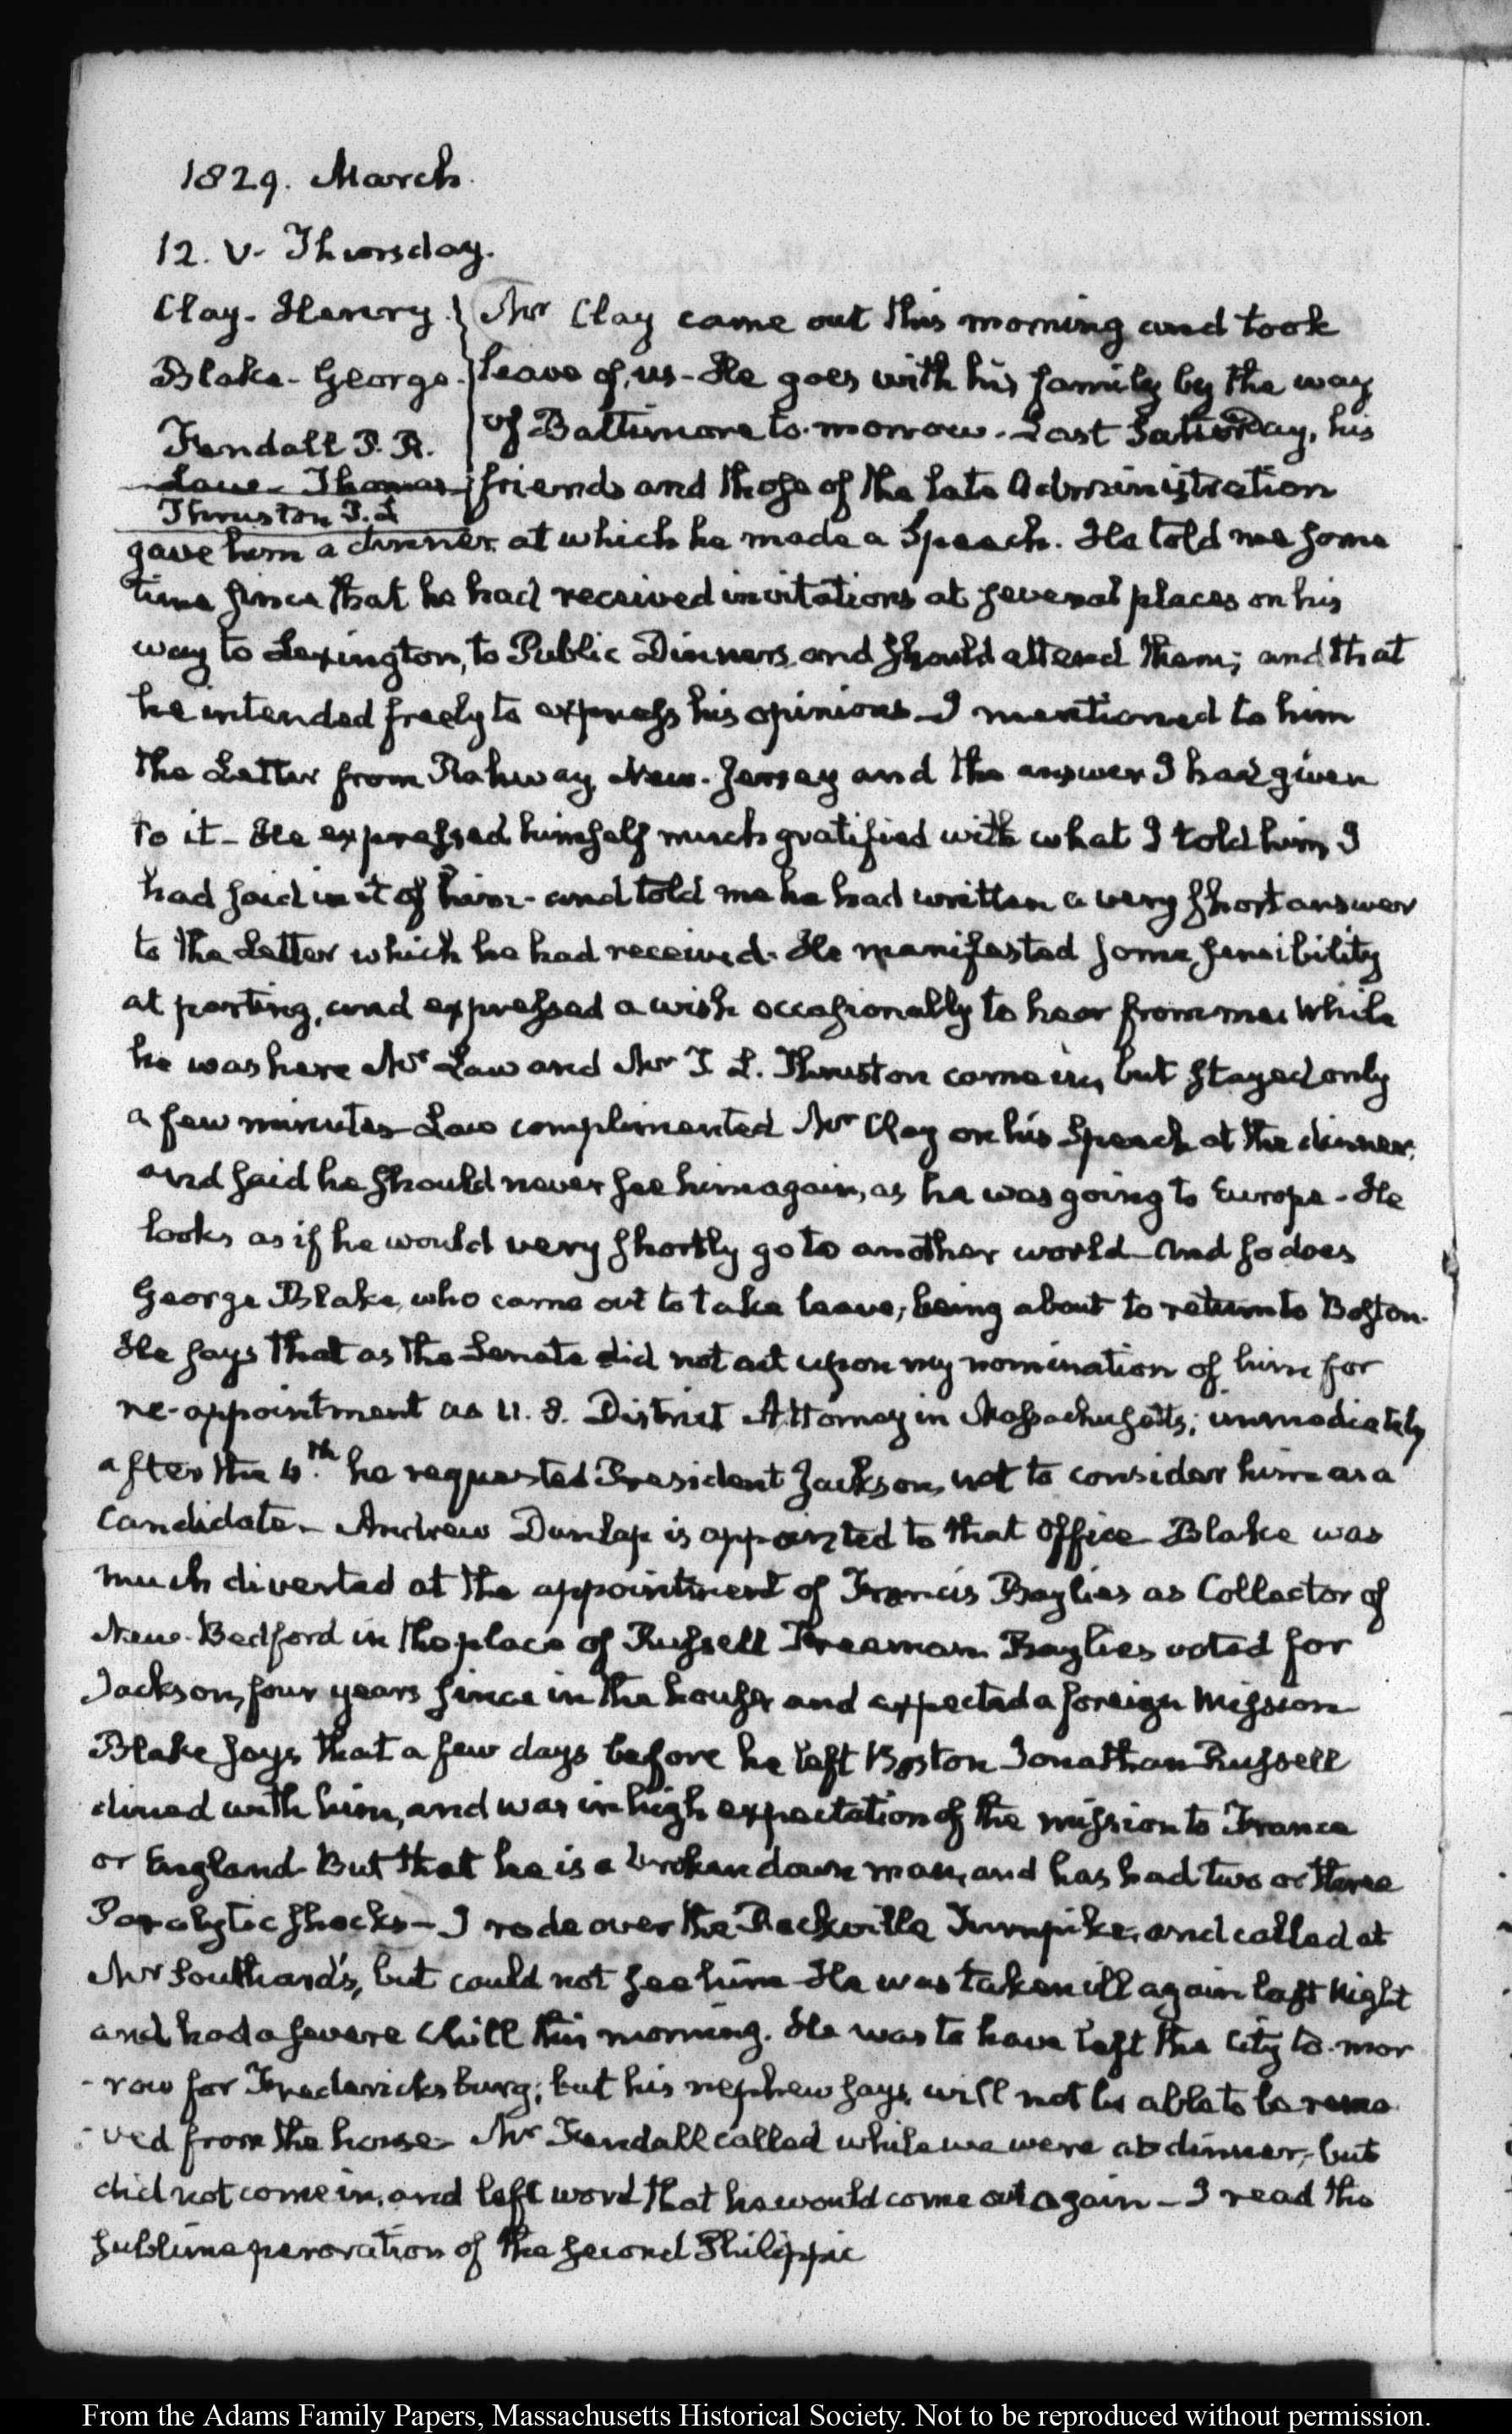 1829. March.
12. V. Thursday.
Clay. Henry.
Blake. George.
Fendall P. R.
Law. Thomas
Thruston T. L
Mr Clay came out this morning and took
leave of us. He goes with his family by the way
of Baltimore to-morrow. Last Saturday, his
friends and those of the late Administration
gave him a dinner at which he made a Speech. He told me some
time since that he had received invitations at several places on his
way to Lexington, to Public Dinners and should attend them; and that
he intended freely to express his opinions. I mentioned to him
the Letter from Rahway, New-Jersey and the answer I had given
to it. He expressed himself much gratified with what I told him I
had said in it of him. and told me he had written a very short answer
to the Letter which he had received. He manifested some sensibility
at parting, and expressed a wish occasionally to hear from me. While
he was here Mr Law and Mr T. L. Thruston came in, but stayed only
a few minutes. Law complimented Mr Clay on his Speech at the dinner,
and said he should never see him again, as he was going to Europe. He
looks as if he would very shortly go to another world. And so does
George Blake, who came out to take leave, being about to return to Boston.
He says that as the Senate did not act upon my nomination of him for
re-appointment as U. S. District Attorney in Massachusetts; immediately
after the 4th he requested President Jackson, not to consider him as a
Candidate. Andrew Dunlap is appointed to that Office. Blake was
much diverted at the appointment of Francis Baylies as Collector of
New-Bedford in the place of Russell Freeman. Baylies voted for
Jackson, four years since in the house, and expected a foreign Mission
Blake says that a few days before he left Boston Jonathan Russell
dined with him, and was in high expectation of the mission to France
or England. But that he is a broken down man, and has had two or three
Paralytic shocks. I rode over the Rockville Turnpike, and called at
Mr Southard's, but could not see him. He was taken ill again last Night
and had a severe Chill this morning. He was to have left the City to-mor
-row for Fredericksburg; but his nephew says, will not be able to be remo
-ved from the house. Mr Fendall called while we were at dinner, but
did not come in, and left word that he would come out again. I read the
sublime peroration of the second Philippic
From the Adams Family Papers, Massachusetts Historical Society. Not to be reproduced without permission.